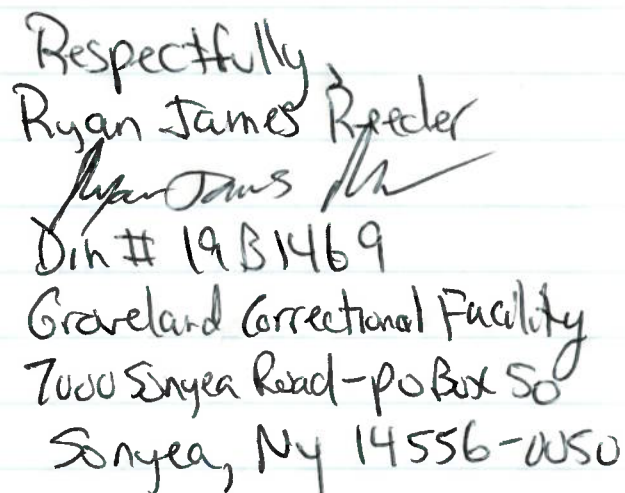 Respectfully,
Ryan James Reeder
Ryan James R
Din # 19B1469
Groveland Correctional Facility
7000 Sonyea Road-po Box 50
Sonyea, Ny 14556-0050